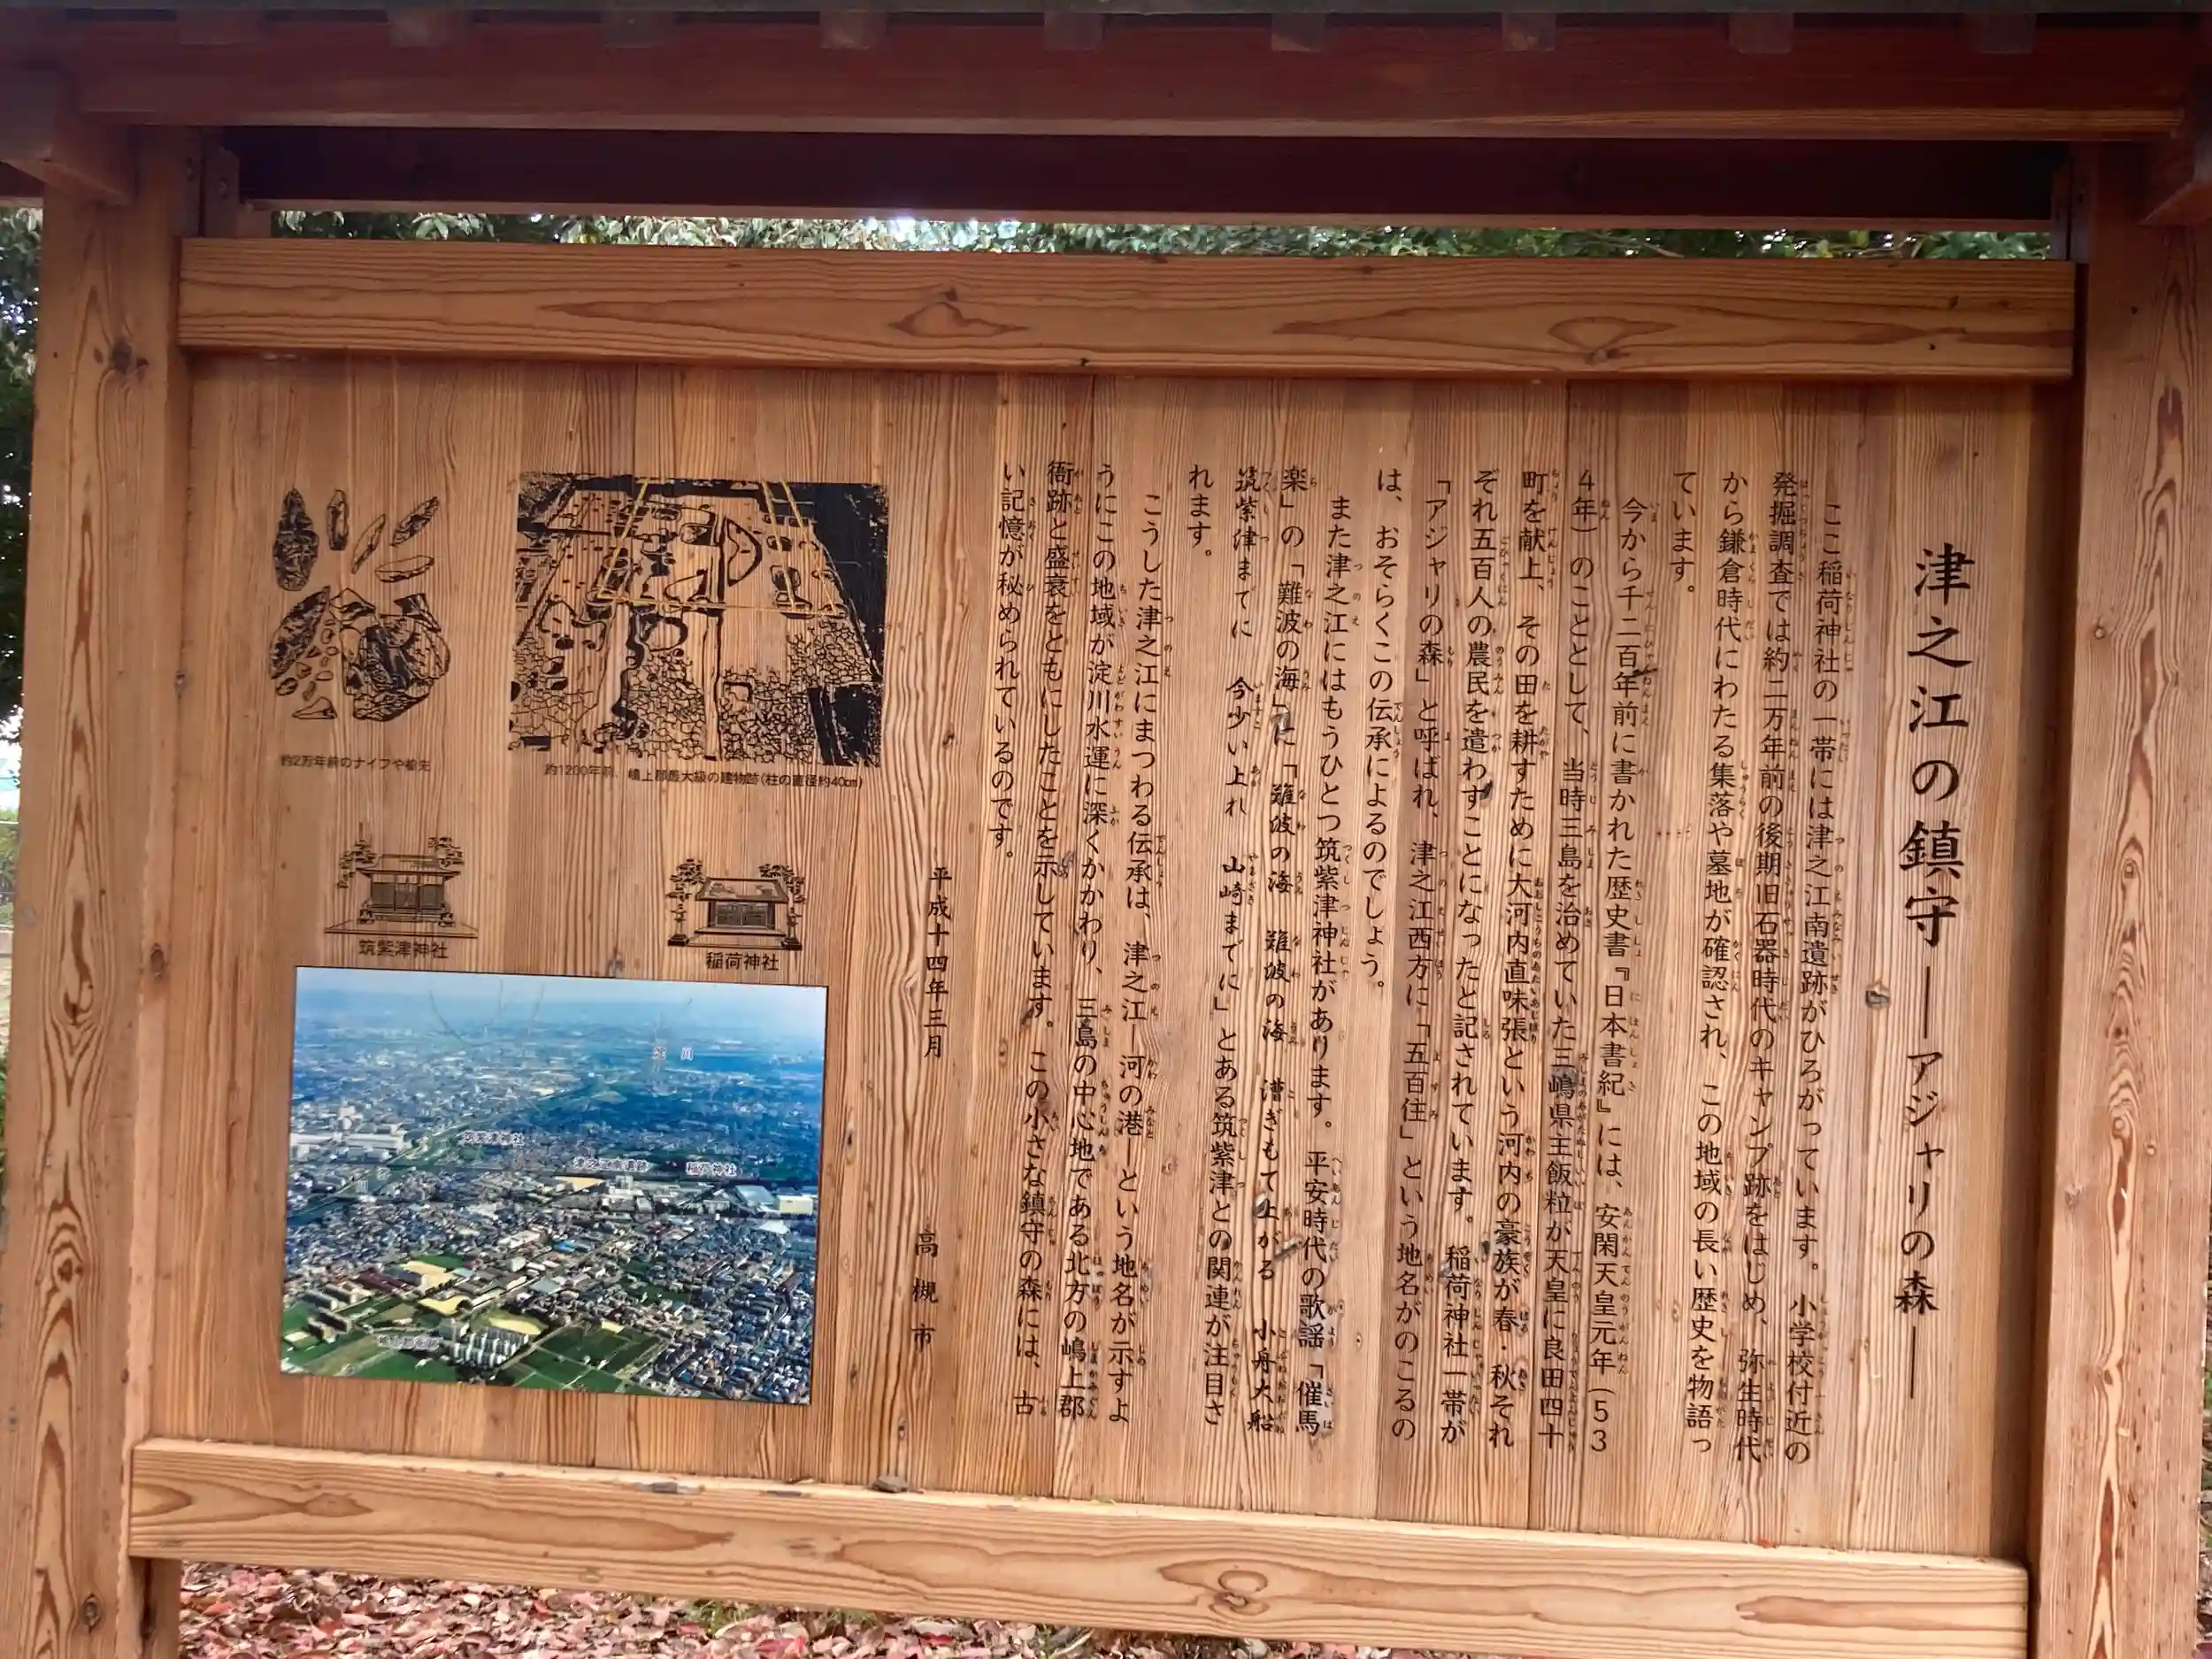 津之江の鎮守―アジャリの森―
ここ稲荷神社の一帯には津之江南遺跡がひろがっています。小学校付近の
発掘調査では約二万年前の後期旧石器時代のキャンプ跡をはじめ、弥生時代
から鎌倉時代にわたる集落や墓地が確認され、この地域の長い歴史を物語っ
ています。
今から千二百年前に書かれた歴史書『日本書紀』には、安閑天皇元年(53
4年)のこととして、当時三島を治めていた三嶋県主飯粒が天皇に良田四十
町を献上、その田を耕すために大河内直味張という河内の豪族が春・秋それ
ぞれ五百人の農民を遣わすことになったと記されています。稲荷神社一帯が
「アジャリの森」と呼ばれ、津之江西方に「五百住」という地名がのこるの
は、おそらくこの伝承によるのでしょう。
また津之江にはもうひとつ筑紫津神社があります。平安時代の歌謡「催馬
楽」の「難波の海」に「難波の海 難波の海 漕ぎもて上がる 小舟大船
筑紫津までに 今少い上れ 山崎までに」とある筑紫津との関連が注目さ
れます。
こうした津之江にまつわる伝承は、津之江―河の港―という地名が示すよ
うにこの地域が淀川水運に深くかかわり、三島の中心地である北方の嶋上郡
衙跡と盛衰をともにしたことを示しています。この小さな鎮守の森には、古
い記憶が秘められているのです。
平成十四年三月 高槻市
約1200年前、嶋上郡最大級の建物跡(柱の直径約40cm)
約2万年前のナイフや槍先
稲荷神社
筑紫津神社
淀川
筑紫津神社
津之江南遺跡
稲荷神社